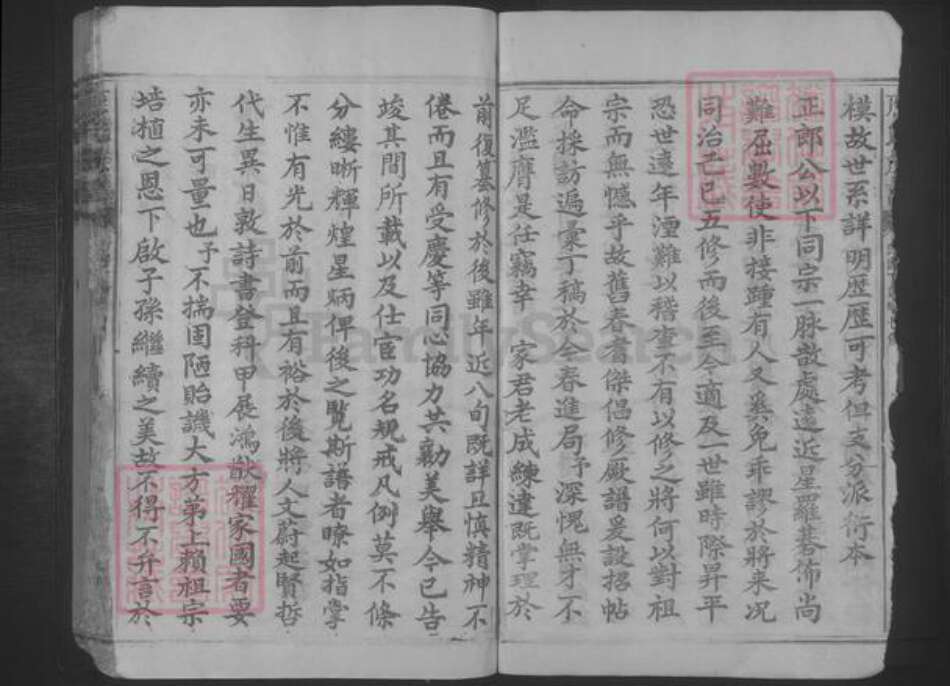 模故世系詳明歷歷可考但支分派衍本
正郎公以下同宗一脉散處遠近星羅碁佈尚
難屈數使非接踵有人又奚免乖謬於將來况
同治己巳五修而後至今適及一世雖時際昇平
恐世遠年湮難以稽查不有以修之將何以對祖
宗而無憾乎故舊春耆傑倡修厥譜爰設招帖
命採訪遍彙丁稿於今春進局予深愧無才不
足濫膺是任竊幸 家君老成練達既掌理於
前復纂修於後雖年近八旬既詳且慎精神不
倦而且有受慶等同心協力共勷美舉今已告
竣其間所載以及仕宦功名規戒凡例莫不條
分縷晰輝煌星炳俾後之覧斯譜者瞭如指掌
不惟有光於前而且有裕於後將人文蔚起賢哲
代生異日敦詩書登科甲展鴻猷耀家國者要
亦未可量也予不揣固陋貽譏大方第上賴祖宗
培植之恩下啟子孫繼續之美故不得不弁言於
FamilySearch